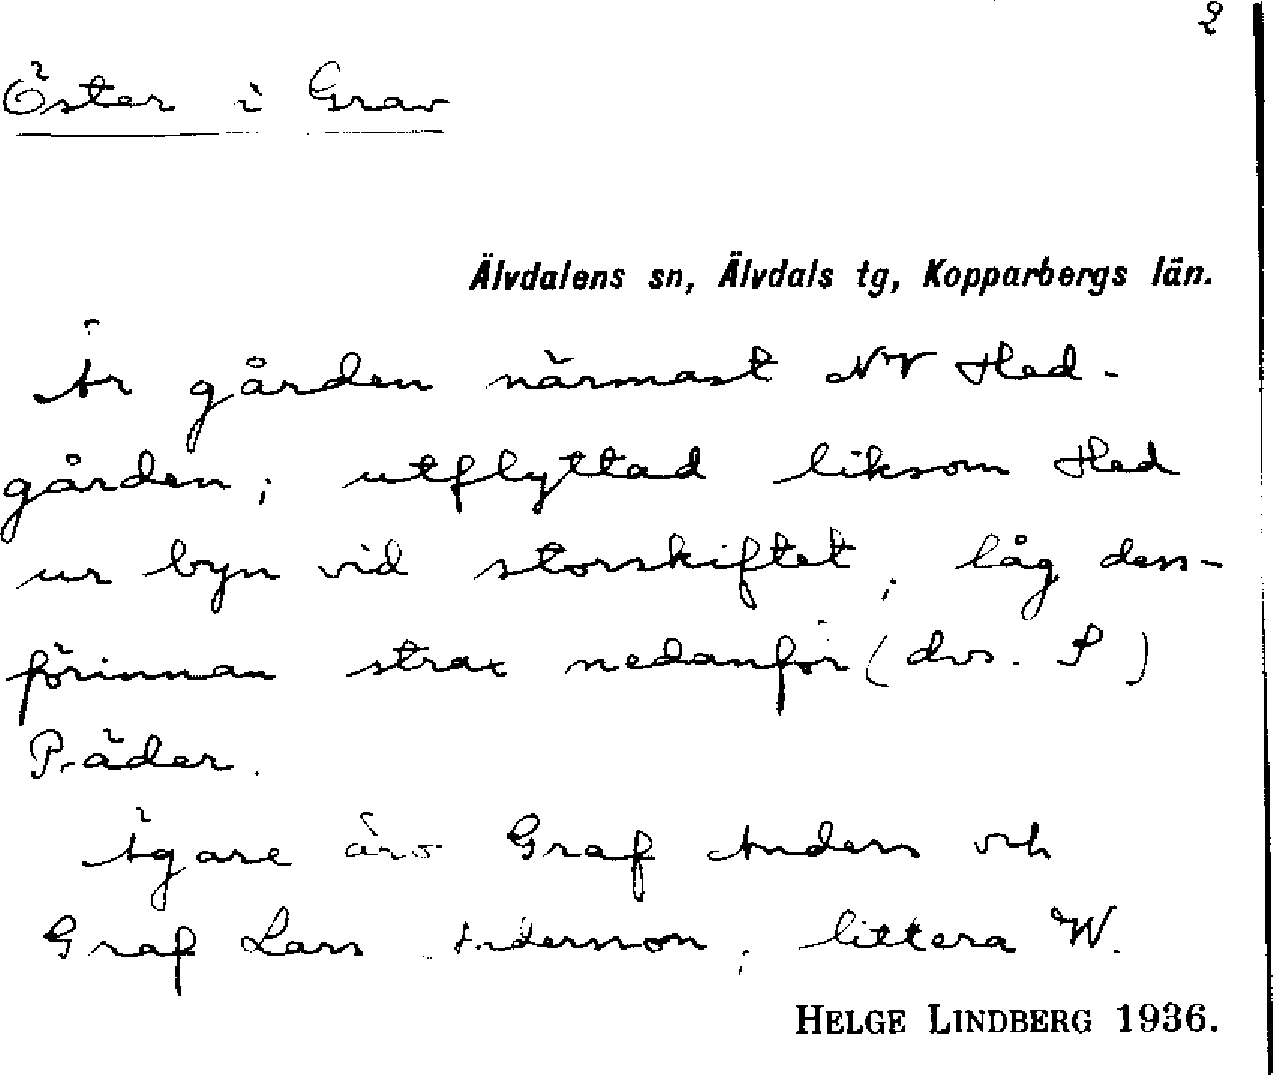 2
Öster i Grav
Älvdalens sn, Älvdals tg, Kopparbergs län.
Är gården närmast NV Hed-
gården; utflyttad liksom Hed
ur byn vid storskiftet; låg dess-
förinnan strax nedanför (dvs. S)
Präder.
Ägare äro Graf Anders och
Graf Lars Andersson, littera W.
HELGE LINDBERG 1936.